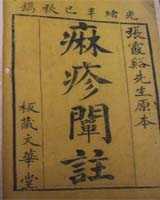 光緒辛巳秋鐫
張霞谿先生原本
痳疹闡註
板藏文華堂